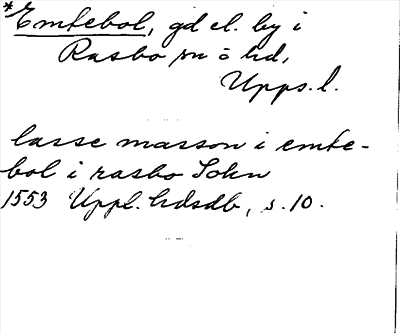 *Emtebol, gd el. by i
Rasbo sn o hd,
Upps. l.
lasse masson i emte-
bol i rasbo Sokn
1553 Uppl. hdsdb, s. 10.